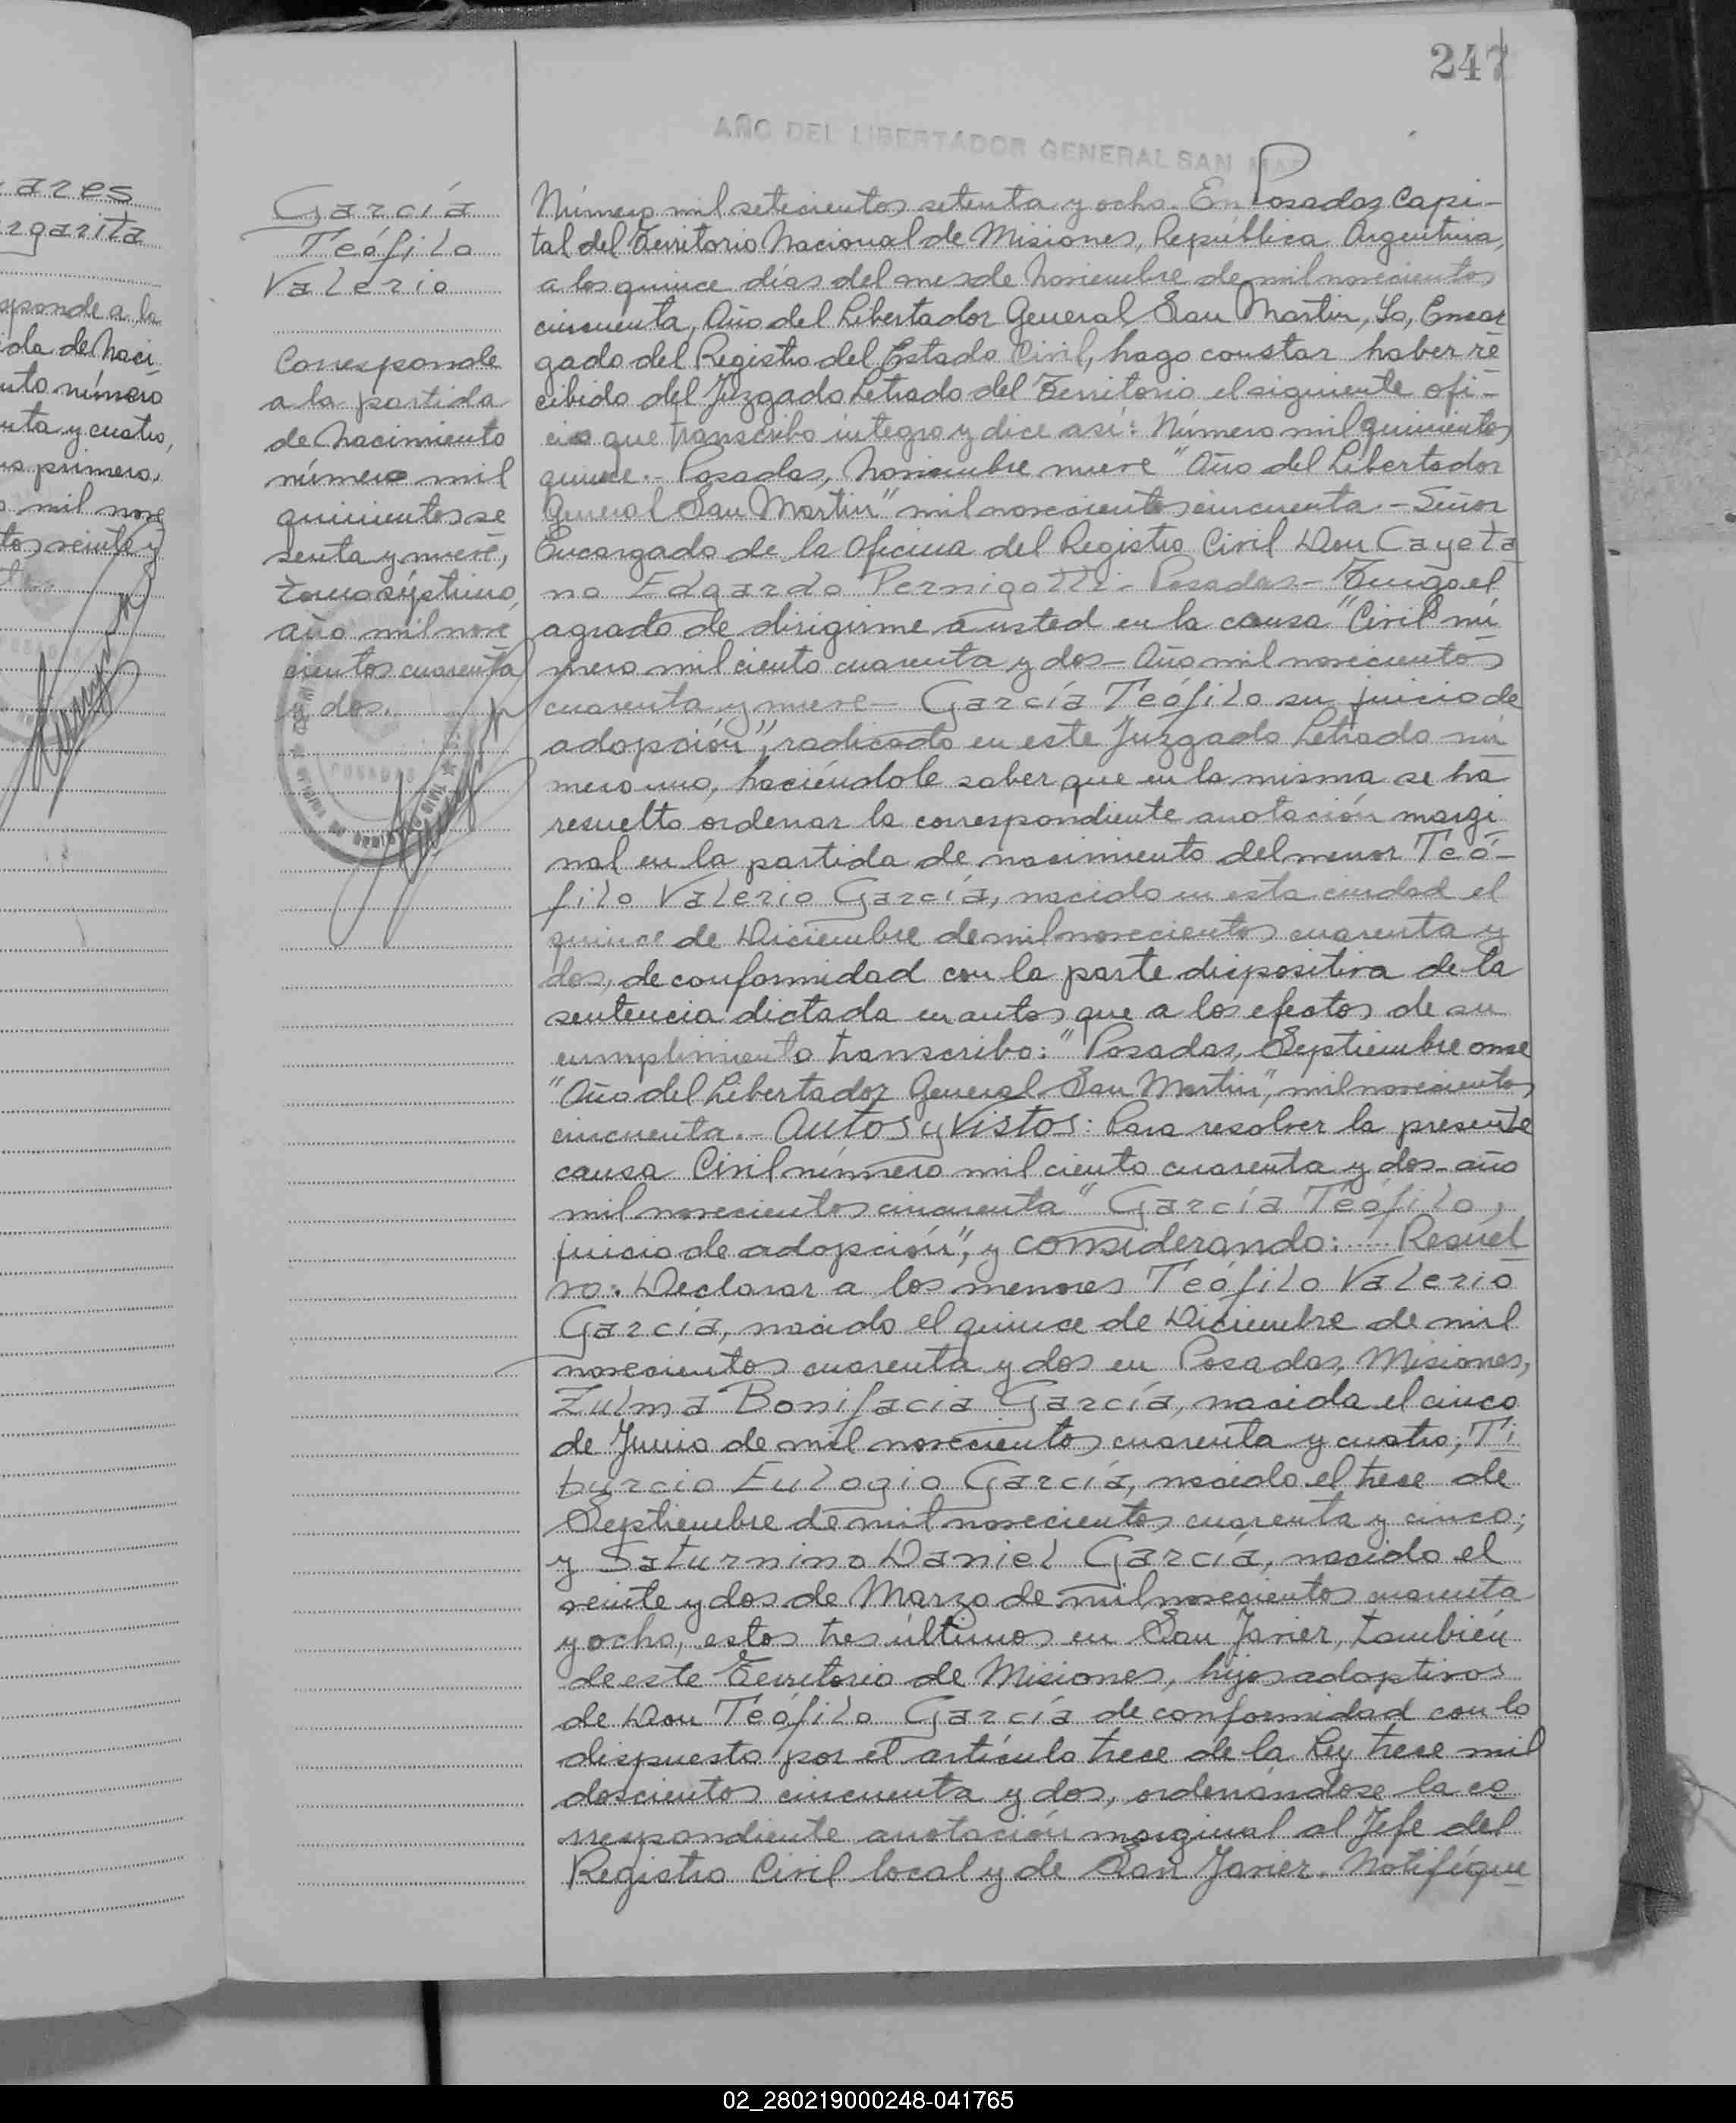 ares
rgarita
sponde a la
ida de naci
nto número
nta y cuatro,
mo primero,
o mil nove
tos veinte y
247
AÑO DEL LIBERTADOR GENERAL SAN MAR
García
Teófilo
Valerio
Corresponde
a la partida
de nacimiento
número mil
quinientos se
senta y nueve,
tomo séptimo,
año mil nove
cientos cuarenta
y dos.
POSADAS
Número mil setecientos setenta y ocho. En Posadas Capi-
tal del Territorio Nacional de Misiones, República Argentina,
a los quince días del mes de Noviembre de mil novecientos
cincuenta, Año del Libertador General San Martin, Yo, Encar
gado del Registro del Estado Civil, hago constar haber re
cibido del Juzgado Letrado del Territorio el siguiente ofi-
cio que transcribo íntegro y dice así: Número mil quinientos
quince.- Posadas, Noviembre nueve "Año del Libertador
General San Martin" mil novecientos cincuenta.- Señor
Encargado de la Oficina del Registro Civil Don Cayeta
no Edgardo Pernigotti.- Posadas.- Tengo el
agrado de dirigirme a usted en la causa "Civil nú
mero mil ciento cuarenta y dos- Año mil novecientos
cuarenta y nueve- García Teófilo su juicio de
adopción", radicado en este Juzgado Letrado nú
mero uno, haciéndole saber que en la misma se ha
resuelto ordenar la correspondiente anotación margi
nal en la partida de nacimiento del menor Teó-
filo Valerio García, nacido en esta ciudad el
quince de Diciembre de mil novecientos cuarenta y
dos, de conformidad con la parte dispositiva de la
sentencia dictada en autos que a los efectos de su
cumplimiento transcribo: "Posadas, Septiembre once
"Año del Libertador General San Martin", mil novecientos
cincuenta.- Autos y Vistos: Para resolver la presente
causa Civil número mil ciento cuarenta y dos- año
mil novecientos cincuenta "García Teófilo,
juicio de adopción", y considerando: Resuel
vo: Declarar a los menores Teófilo Valerio
García, nacido el quince de Diciembre de mil
novecientos cuarenta y dos en Posadas, Misiones,
Zulma Bonifacia García, nacida el cinco
de Junio de mil novecientos cuarenta y cuatro; Ti
burcio Eulogio García, nacido el trece de
Septiembre de mil novecientos cuarenta y cinco;
y Saturnino Daniel García, nacido el
veinte y dos de Marzo de mil novecientos cuarenta
y ocho, estos tres últimos en San Javier, también
de este Territorio de Misiones, hijos adoptivos
de Don Teófilo García de conformidad con lo
dispuesto por el artículo trece de la Ley trece mil
doscientos cincuenta y dos, ordenándose la co
rrespondiente anotación marginal al Jefe del
Registro Civil local y de San Javier. Notifíque
02_280219000248-041765